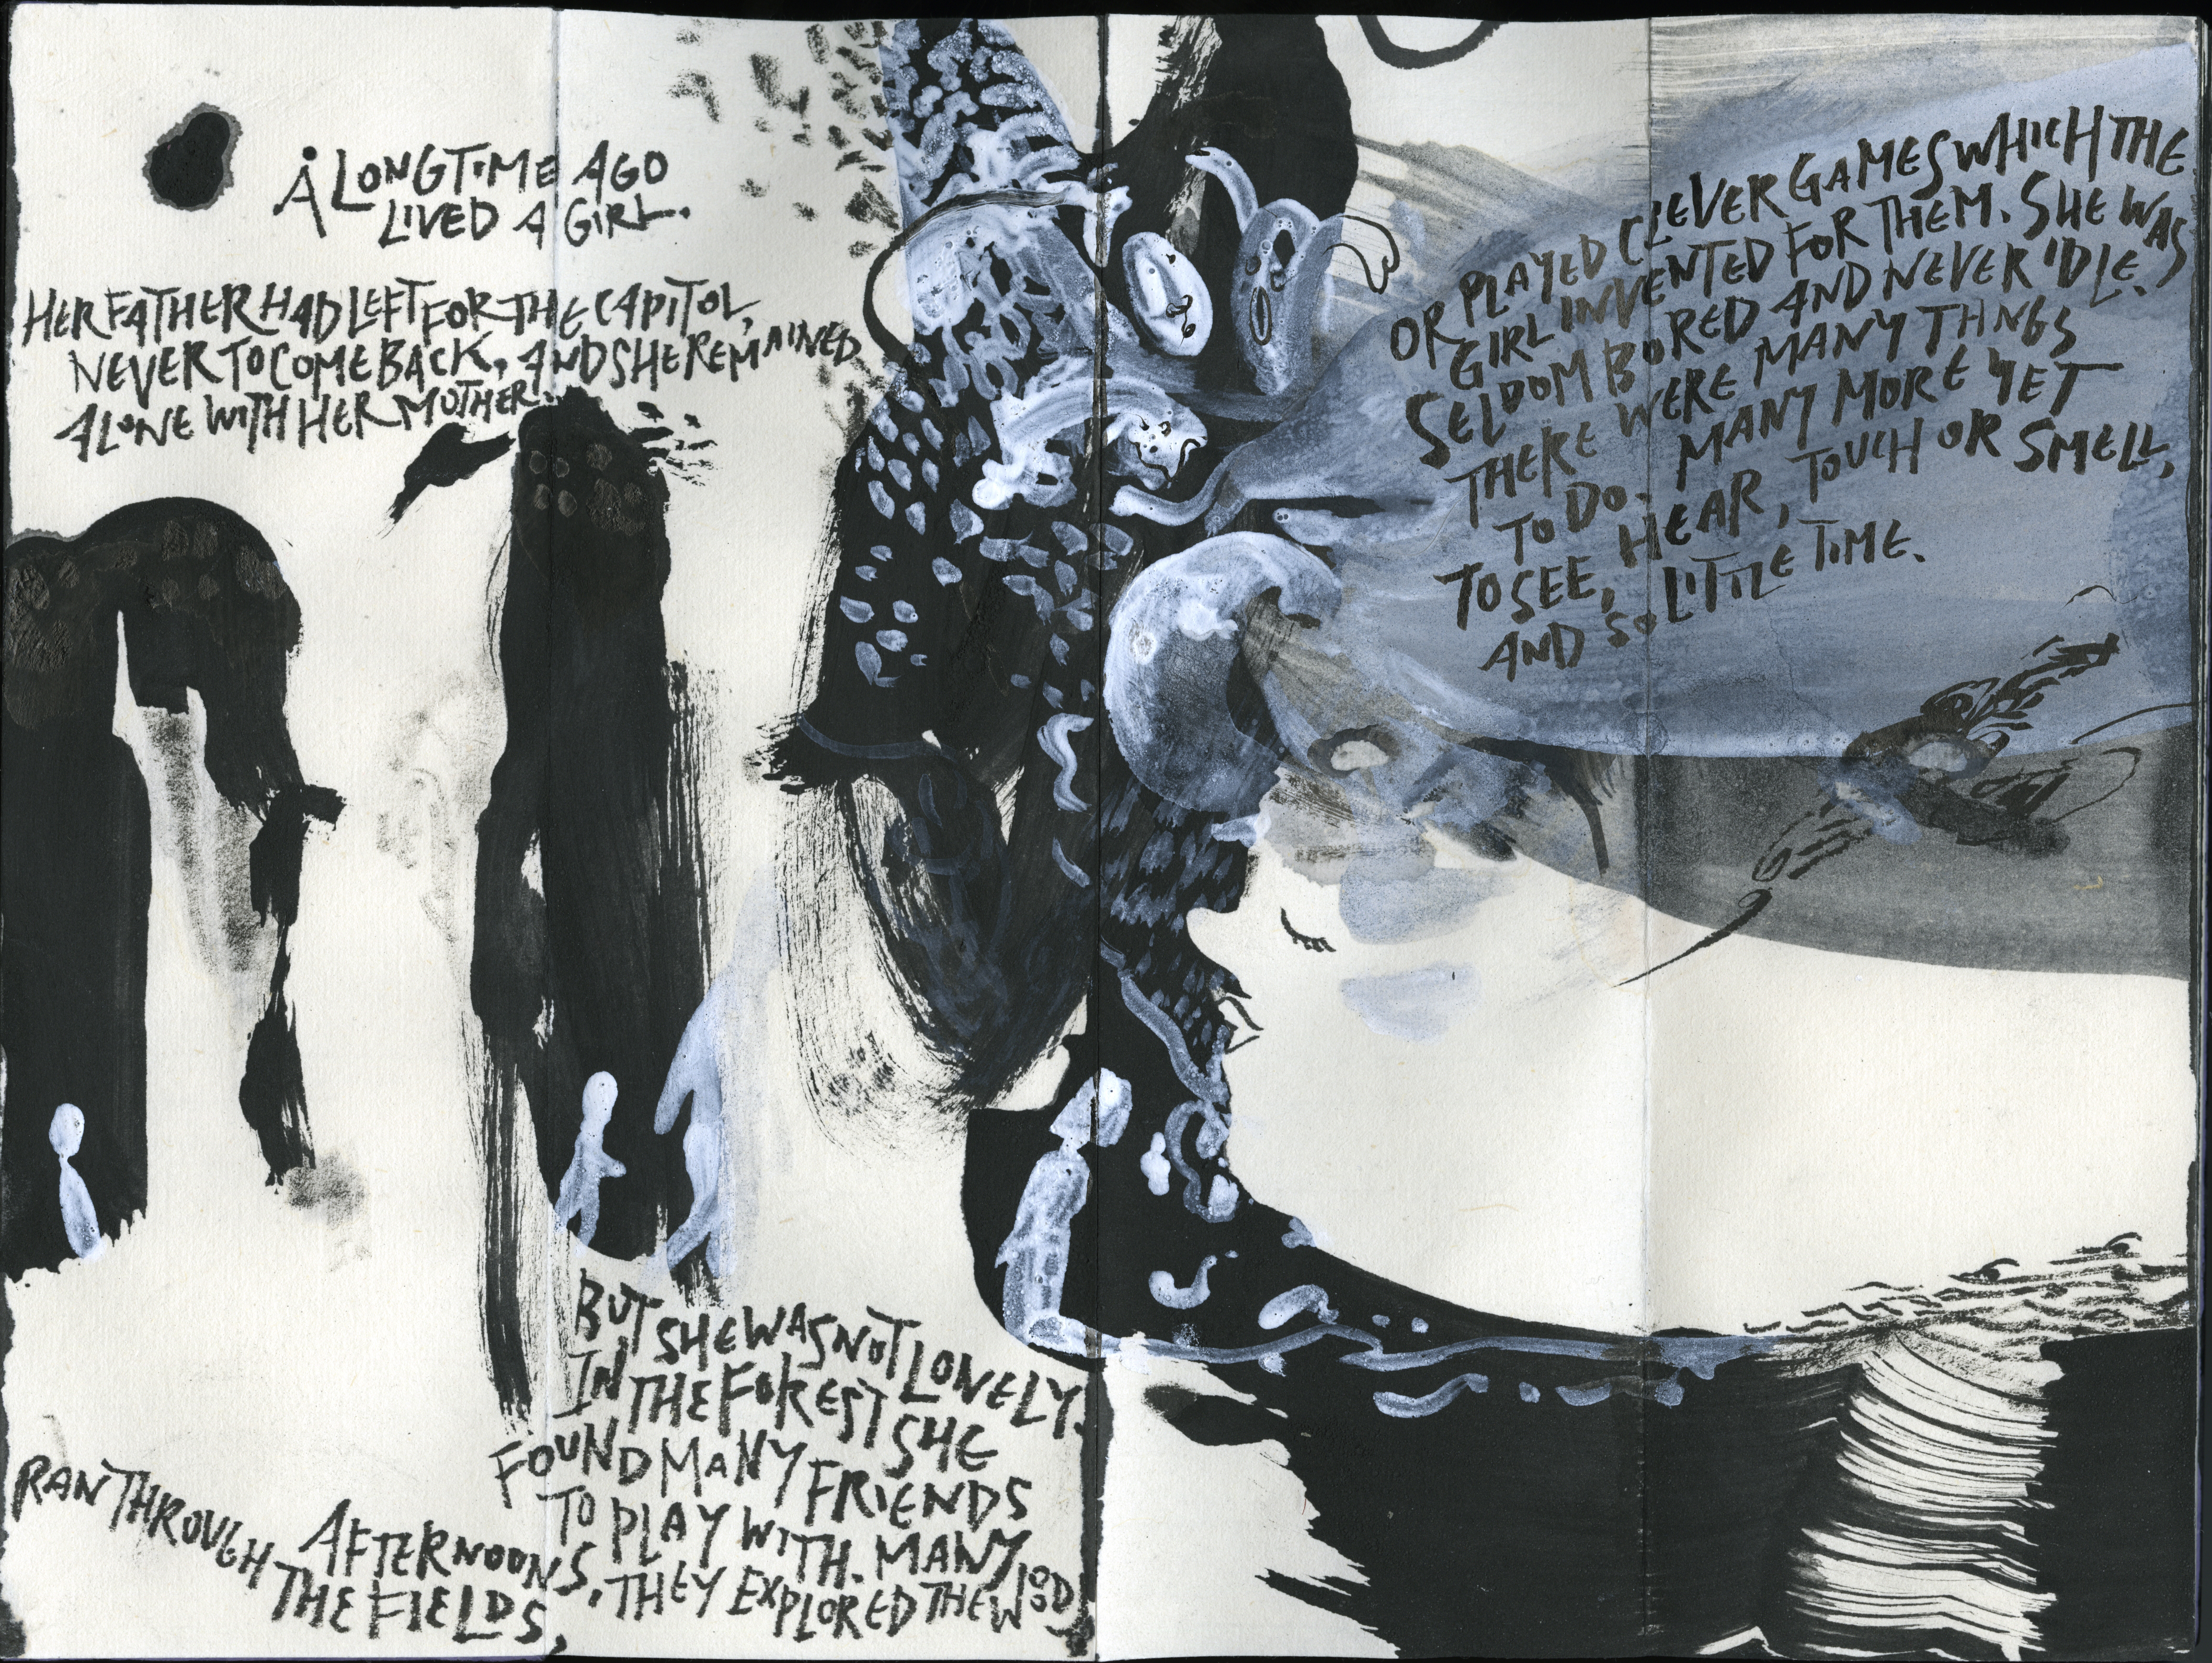 A LONG TIME AGO
LIVED A GIRL.
HER FATHER HAD LEFT FOR THE CAPITOL,
NEVER TO COME BACK, AND SHE REMAINED
ALONE WITH HER MOTHER.
BUT SHE WAS NOT LONELY.
IN THE FOREST SHE
FOUND MANY FRIENDS
TO PLAY WITH. MANY
AFTERNOONS, THEY EXPLORED THE WOOD,
RAN THROUGH THE FIELDS,
OR PLAYED CLEVER GAMES WHICH THE
GIRL INVENTED FOR THEM. SHE WAS
SELDOM BORED AND NEVER IDLE.
THERE WERE MANY THNGS
TO DO. MANY MORE YET
TO SEE, HEAR, TOUCH OR SMELL,
AND SO LITTLE TIME.